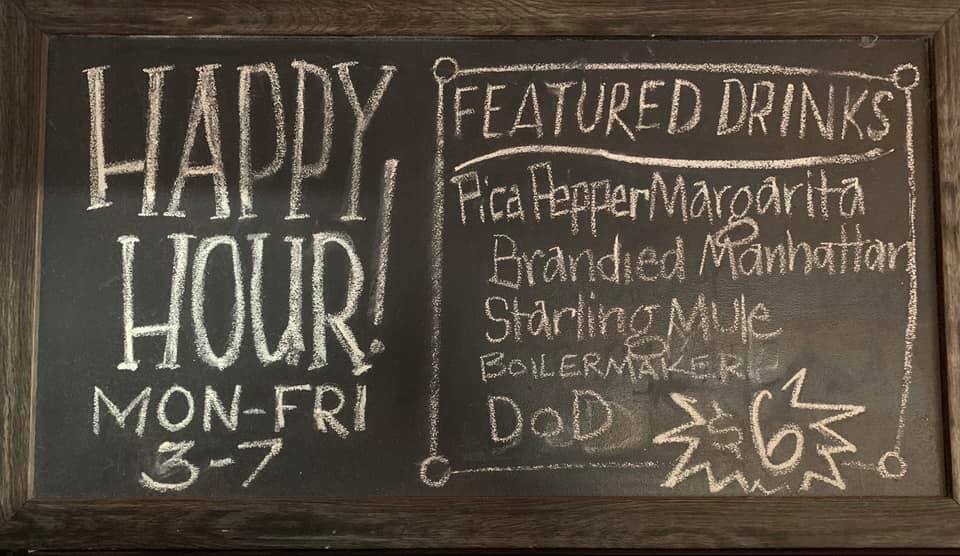 HAPPY
HOUR!
MON-FRI
3-7
FEATURED DRINKS
Pica Pepper Margarita
Brandied Manhattan
Starling Mule
BOILERMAKER
DoD
$6